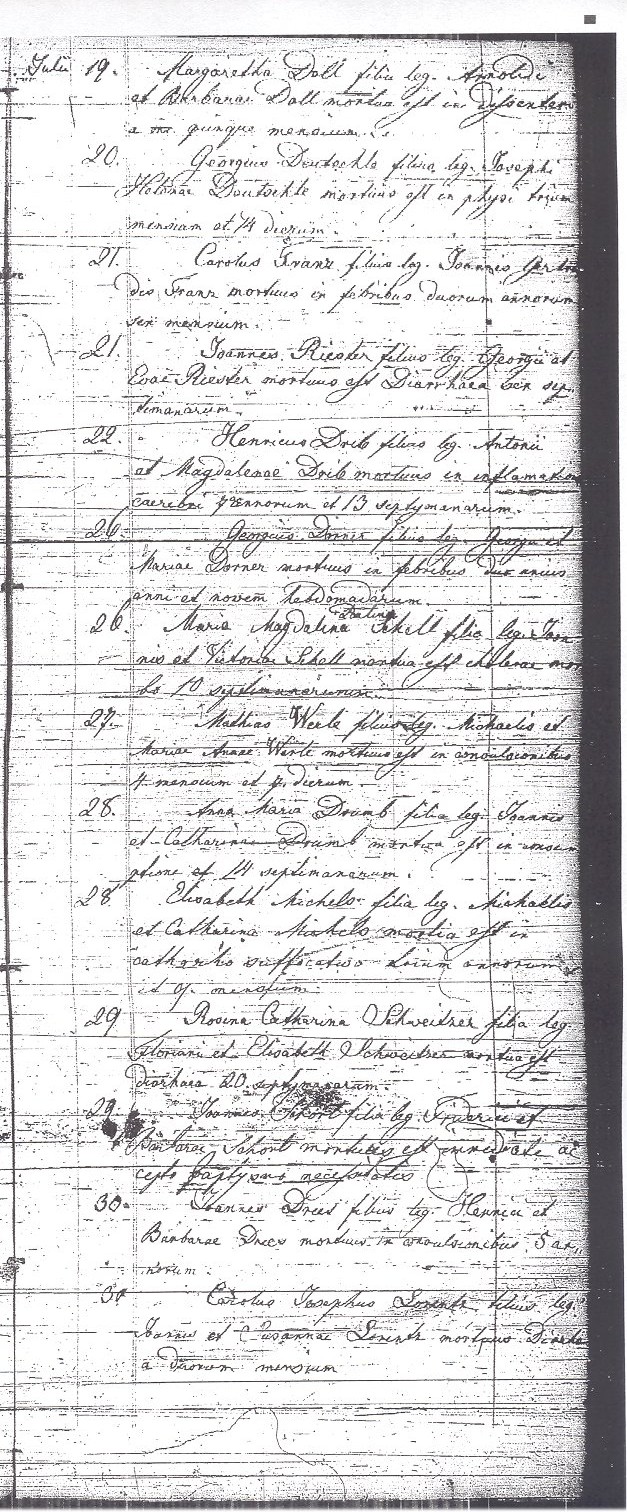 Julii 19. Margaretha Doll filia leg. Arnoldi
et Barbarae Doll mortua est in dissenter
a quinque mensium.
20. Georgius Deutschle filius leg. Josephi
Helenae Deutschle mortuus est in physi trium
mensium et 14 dierum.
21. Carolus Franz filius leg. Joannis Gertru
dis Franz mortuus in febribus duorum annorum
sex mensium.
21. Joannes Riester filius leg. Georgii et
Evae Riester mortuus est Diarrhaea sex sep
timanarum.
22. Henricus Drib filius leg. Antonii
et Magdalenae Drib mortuus in inflamation
caerebri annorum et 13 septymanarum.
26. Georgius Dorner filius leg. Georgii et
Mariae Dorner mortuus in febribus unius
anni et novem hebdomadarum.
26. Maria Magdalina Schell filia leg. Joan
nis et Victoriae Schell mortua est cholerae mor
bo 10 septimanarum.
27. Mathias Werle filius leg. Michaelis et
Mariae Annae Werle mortuus est in convulsionibus
4 mensium et dierum.
28. Anna Maria Drumb filia leg. Joannis
et Catharinae Drumb mortua est in consum
ptione et 14 septimanarum.
28 Elisabeth Michels filia leg. Michaelis
et Catharina Michels mortua est in
suffocativo trium annorum
et 9. mensium.
29 Rosina Catharina Schweitzer filia leg
Floriani et Elisabeth Schweitzer mortua est
diarhaea 20 septymanarum.
29. Joannes Schort filia leg Friderici et
Barbarae Schort mortuus est immediate ac
cepto baptysmo necessitatis
30. Joannes Drees filius leg. Henrici et
Barbarae Drees mortuus in convulsionibus 5 an,,
norum.
30 Carolus Josephus Lorentz filius leg.
Joannis et Susannae Lorentz mortuus Diarrhe
a duorum mensium